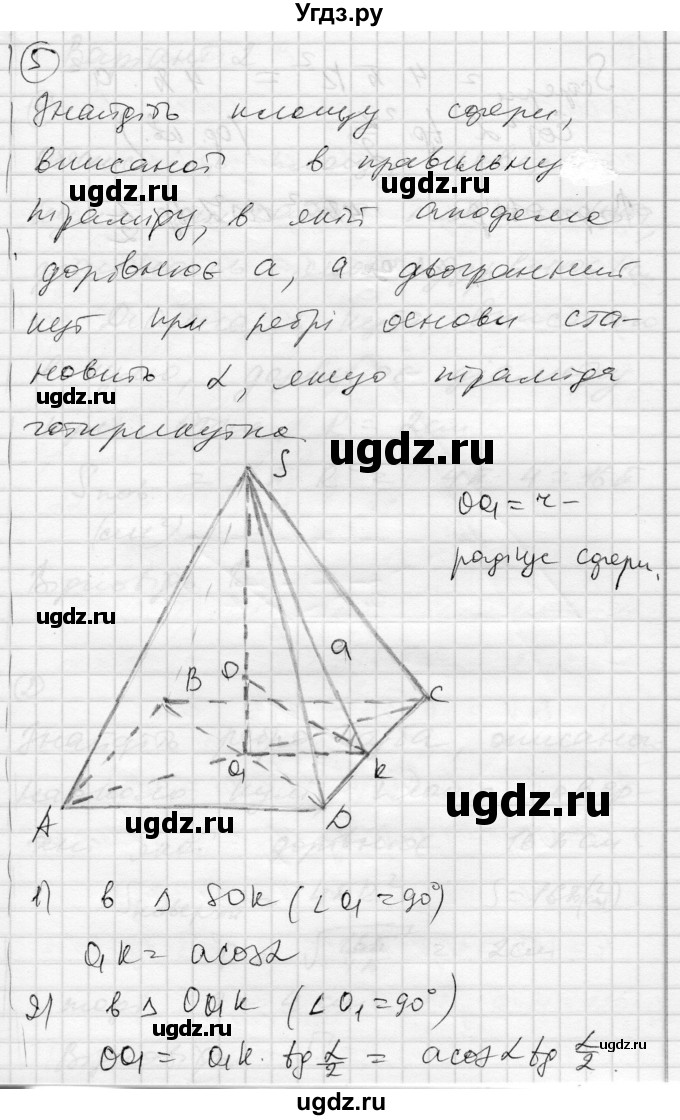 Угдз.ру
5
Знайдіть площу сфери,
вписаної в правильну
ugdz.ru ugdz.ru
піраміду, в якій апофема
дорівнює a, а двогранний
кут при ребрі основи ста-
новить α, якщо піраміда
ugdz.ru
чотирикутна.
ugdz.ru
S
OO₁ = r –
радіус сфери.
ugdz.ru
a
B O C
O₁ K
ugdz.ru
A D
ugdz.ru
1) в Δ SOK (∠O₁ = 90°)
O₁K = a cos α
2) в Δ OO₁K (∠O₁ = 90°)
OO₁ = O₁K · tg α/2 = a cos α tg α/2.
ugdz.ru
ugdz.ru